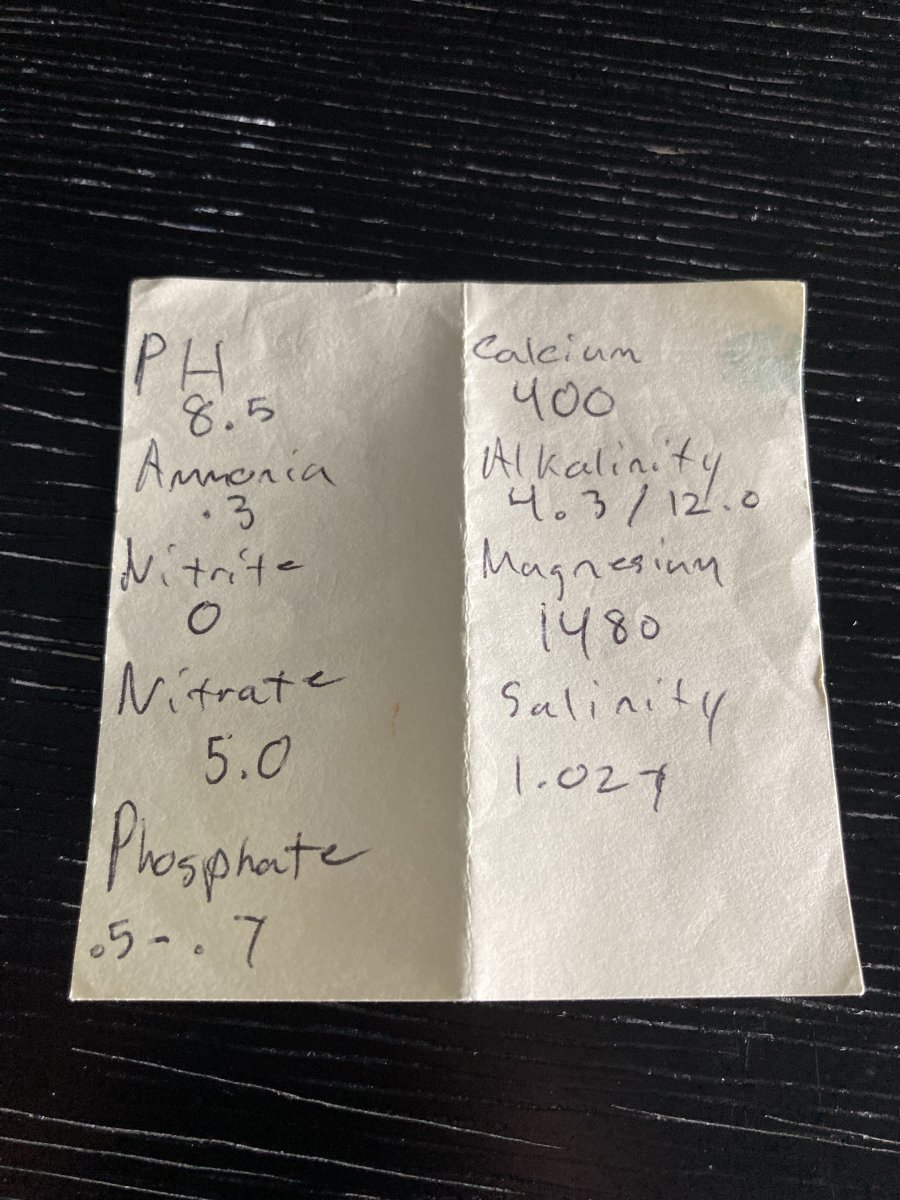 PH
8.5
Ammonia
.3
Nitrite
0
Nitrate
5.0
Phosphate
.5-.7
Calcium
400
Alkalinity
4.3/12.0
Magnesium
1480
Salinity
1.027